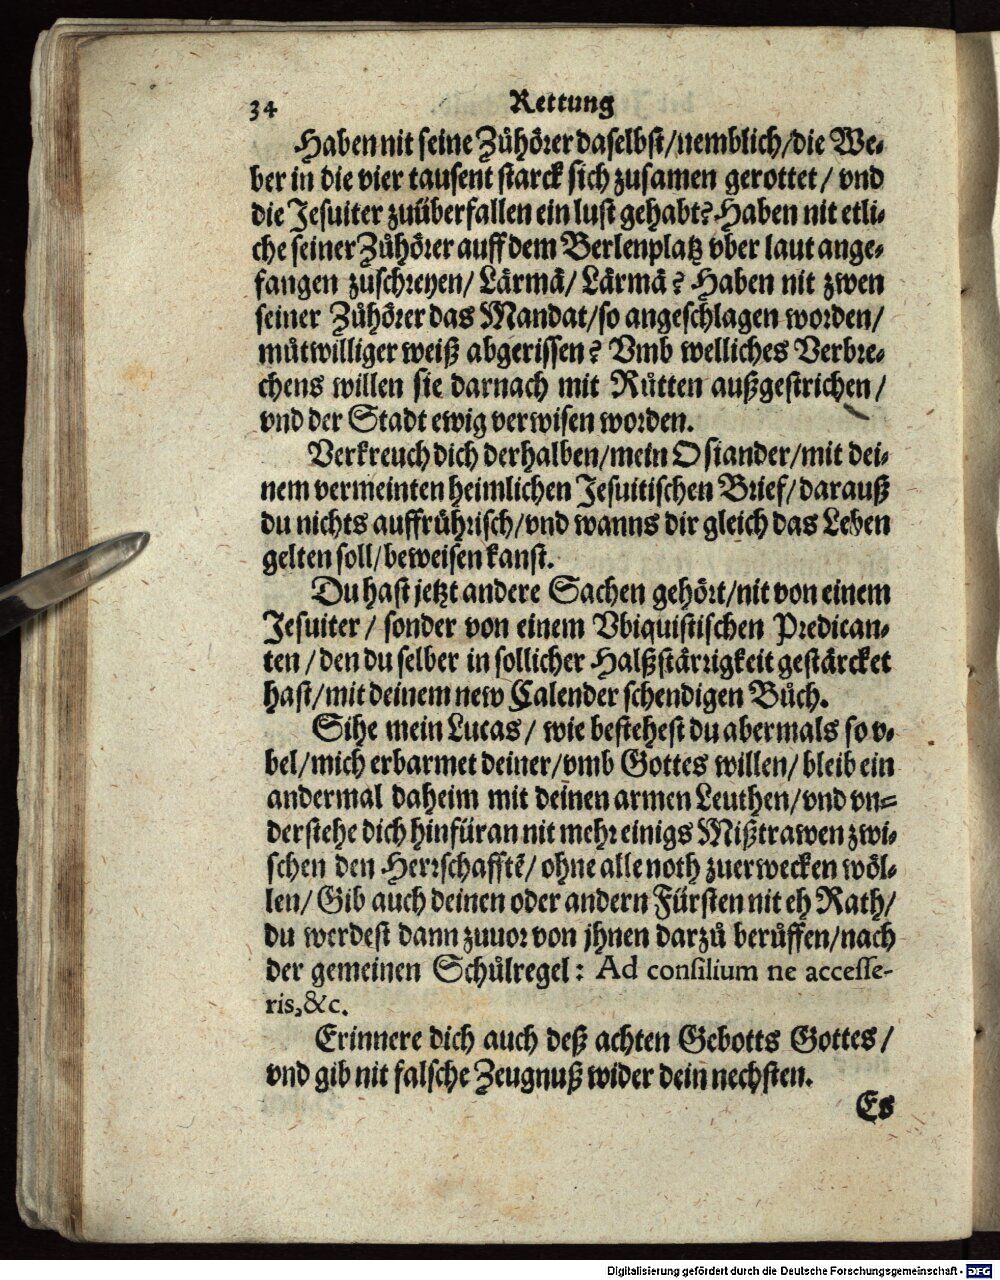 34 Rettung
Haben nit seine Zůhörer daselbst/nemblich/die We-
ber in die vier tausent starck sich zusamen gerottet/ vnd
die Jesuiter zuüberfallen ein lust gehabt? Haben nit etli-
che seiner Zůhörer auff dem Berlenplatz vber laut ange-
fangen zuschreyen/ Lärmā/ Lärmā? Haben nit zwen
seiner Zůhörer das Mandat/so angeschlagen worden/
můtwilliger weiß abgerissen? Vmb welliches Verbre-
chens willen sie darnach mit Růtten außgestrichen/
vnd der Stadt ewig verwisen worden.
Verkreuch dich derhalben/mein Osiander/mit dei-
nem vermeinten heimlichen Jesuitischen Brief/darauß
du nichts auffrührisch/vnd wanns dir gleich das Leben
gelten soll/beweisen kanst.
Du hast jetzt andere Sachen gehört/nit von einem
Jesuiter/ sonder von einem Vbiquistischen Predican-
ten/den du selber in sollicher Halßstärrigkeit gestärcket
hast/mit deinem new Calender schendigen Bůch.
Sihe mein Lucas/ wie bestehest du abermals so v-
bel/mich erbarmet deiner/vmb Gottes willen/ bleib ein
andermal daheim mit deinen armen Leuthen/vnd vn-
derstehe dich hinfüran nit mehr einigs Mißtrawen zwi-
schen den Herrschafftē/ ohne alle noth zuerwecken wöl-
len/ Gib auch deinen oder andern Fürsten nit eh Rath/
du werdest dann zuuor von jhnen darzů berůffen/nach
der gemeinen Schůlregel: Ad consilium ne accesse-
ris,&c.
Erinnere dich auch deß achten Gebotts Gottes/
vnd gib nit falsche Zeugnuß wider dein nechsten.
Es
Digitalisierung gefördert durch die Deutsche Forschungsgemeinschaft - DFG